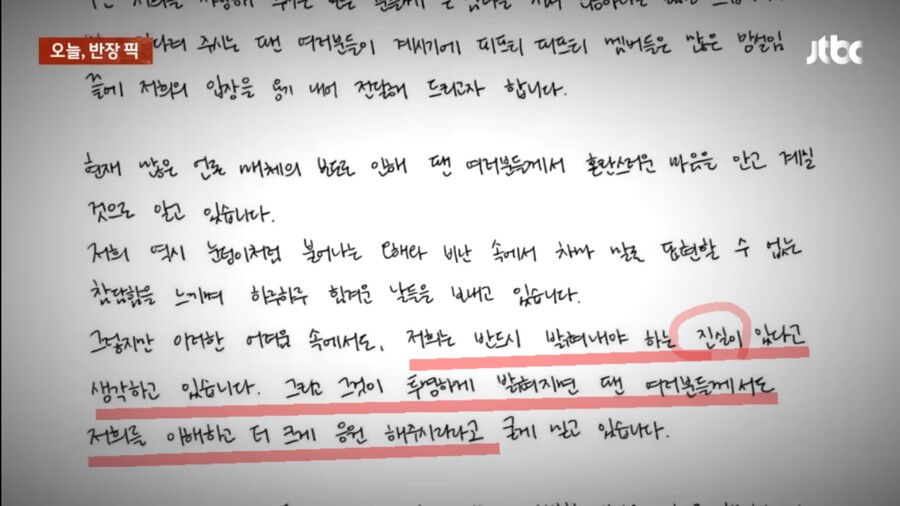 오늘, 반장 픽
jtbc
주시는 팬 여러분들이 계시기에 피프티 피프티 멤버들은 많은 망설임
끝에 저희의 입장을 용기 내어 전달해 드리고자 합니다.
현재 많은 언론 매체의 보도로 인해 팬 여러분들께서 혼란스러운 마음을 안고 계실
것으로 알고 있습니다.
저희 역시 눈덩이처럼 불어나는 오해와 비난 속에서 차마 말로 표현할 수 없는
참담함을 느끼며 하루하루 힘겨운 날들을 보내고 있습니다.
그렇지만 이러한 어려움 속에서도, 저희는 반드시 밝혀내야 하는 진실이 있다고
생각하고 있습니다. 그리고 그것이 투명하게 밝혀지면 팬 여러분들께서도
저희를 이해하고 더 크게 응원 해주시리라고 굳게 믿고 있습니다.